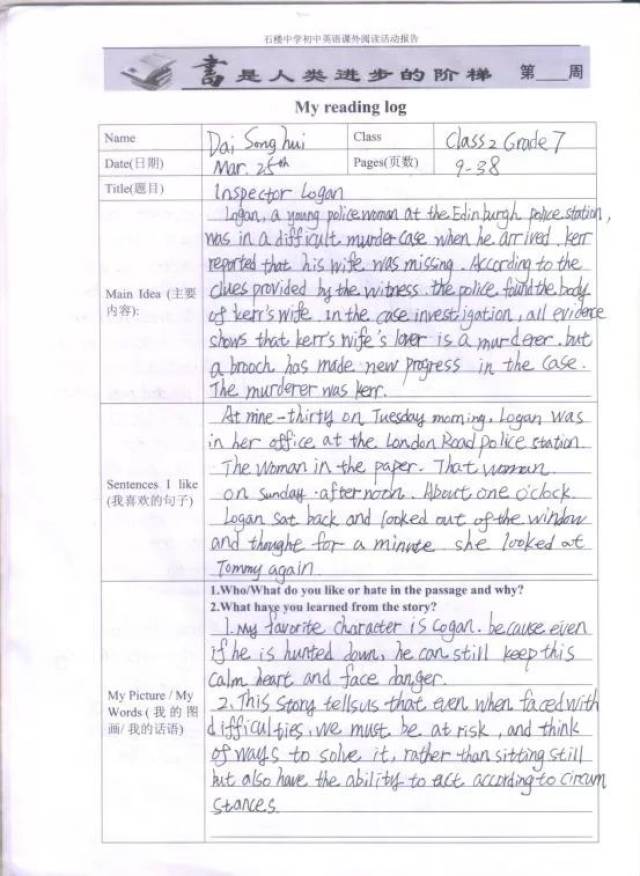 石楼中学初中英语课外阅读活动报告
书是人类进步的阶梯 第___周
My reading log
Name Dai Song hui Class Class 2 Grade 7
Date(日期) Mar. 25th Pages(页数) 9-38
Title(题目) Inspector Logan
Main Idea (主要内容):
Logan, a young policewoman at the Edinburgh police station,
was in a difficult murder case when he arrived. kerr
reported that his wife was missing. According to the
clues provided by the witness. the police found the body
of kerr's wife. in the case investigation, all evidence
shows that kerr's wife's lover is a murderer. but
a brooch has made new progress in the case.
The murderer was kerr.
Sentences I like
(我喜欢的句子)
At nine-thirty on Tuesday morning, Logan was
in her office at the London Road police station.
The woman in the paper. That woman
on sunday afternoon. About one o'clock.
Logan sat back and looked out of the window
and thought for a minute she looked at
Tommy again
My Picture / My
Words ( 我 的 图
画/ 我的话语)
1.Who/What do you like or hate in the passage and why?
2.What have you learned from the story?
1. My favorite character is Cogan. because even
if he is hunted down, he can still keep this
calm heart and face danger.
2. This story tells us that even when faced with
difficulties, we must be at risk, and think
of ways to solve it, rather than sitting still
but also have the ability to act according to circum
stances.